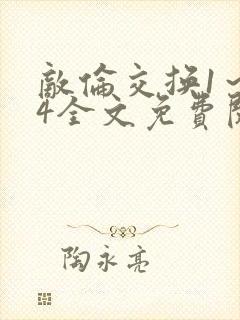 敵倫交换1～
4全文免費閱
陶永亮